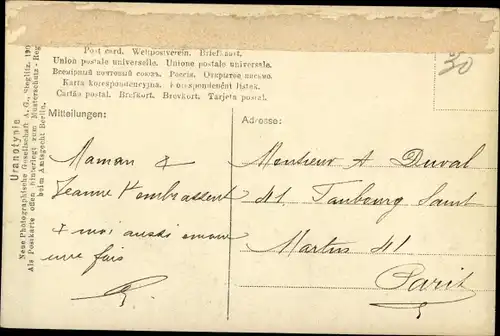 Post card. Weltpostverein. Briefkaart.
Union postale universelle. Unione postale universale.
Всемірный почтовый союзъ. Россія. Открытое письмо.
Karta korespondencyjna. Korespondenční lístek.
Cartão postal. Brefkort. Brevkort. Tarjeta postal.
30
Uranotypie
Neue Photographische Gesellschaft A. G., Steglitz. 190
Als Postkarte oben hinterlegt vom Musterschutz-Reg
beim Amtsgericht Berlin.
Mitteilungen:
Adresse:
Maman &
Jeanne t'embrassent
& moi aussi encore
une fois
Monsieur A Duval
41 Faubourg Saint
Martin 41
Paris